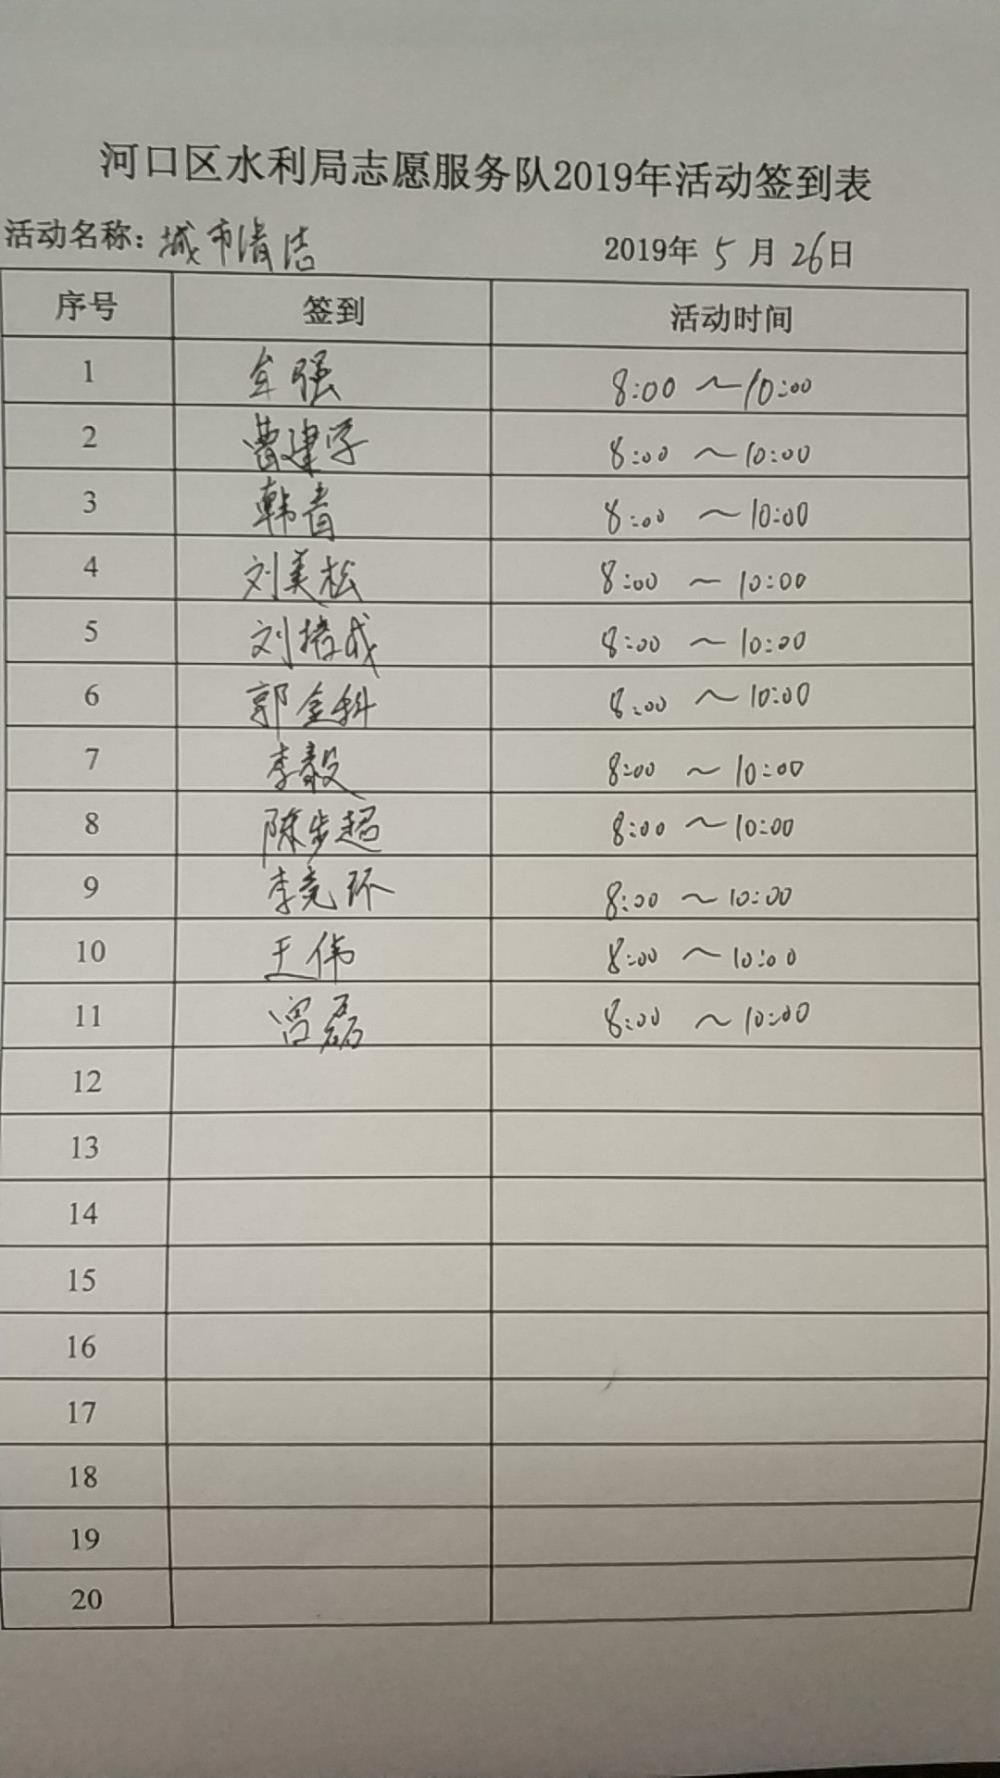 河口区水利局志愿服务队2019年活动签到表
活动名称：城市清洁 2019年5月26日
序号 签到 活动时间
1 牟强 8:00～10:00
2 曹建学 8:00～10:00
3 韩青 8:00～10:00
4 刘美松 8:00～10:00
5 刘培成 8:00～10:00
6 郭金科 8:00～10:00
7 李毅 8:00～10:00
8 陈步超 8:00～10:00
9 李竞环 8:00～10:00
10 王伟 8:00～10:00
11 宫磊 8:00～10:00
12
13
14
15
16
17
18
19
20